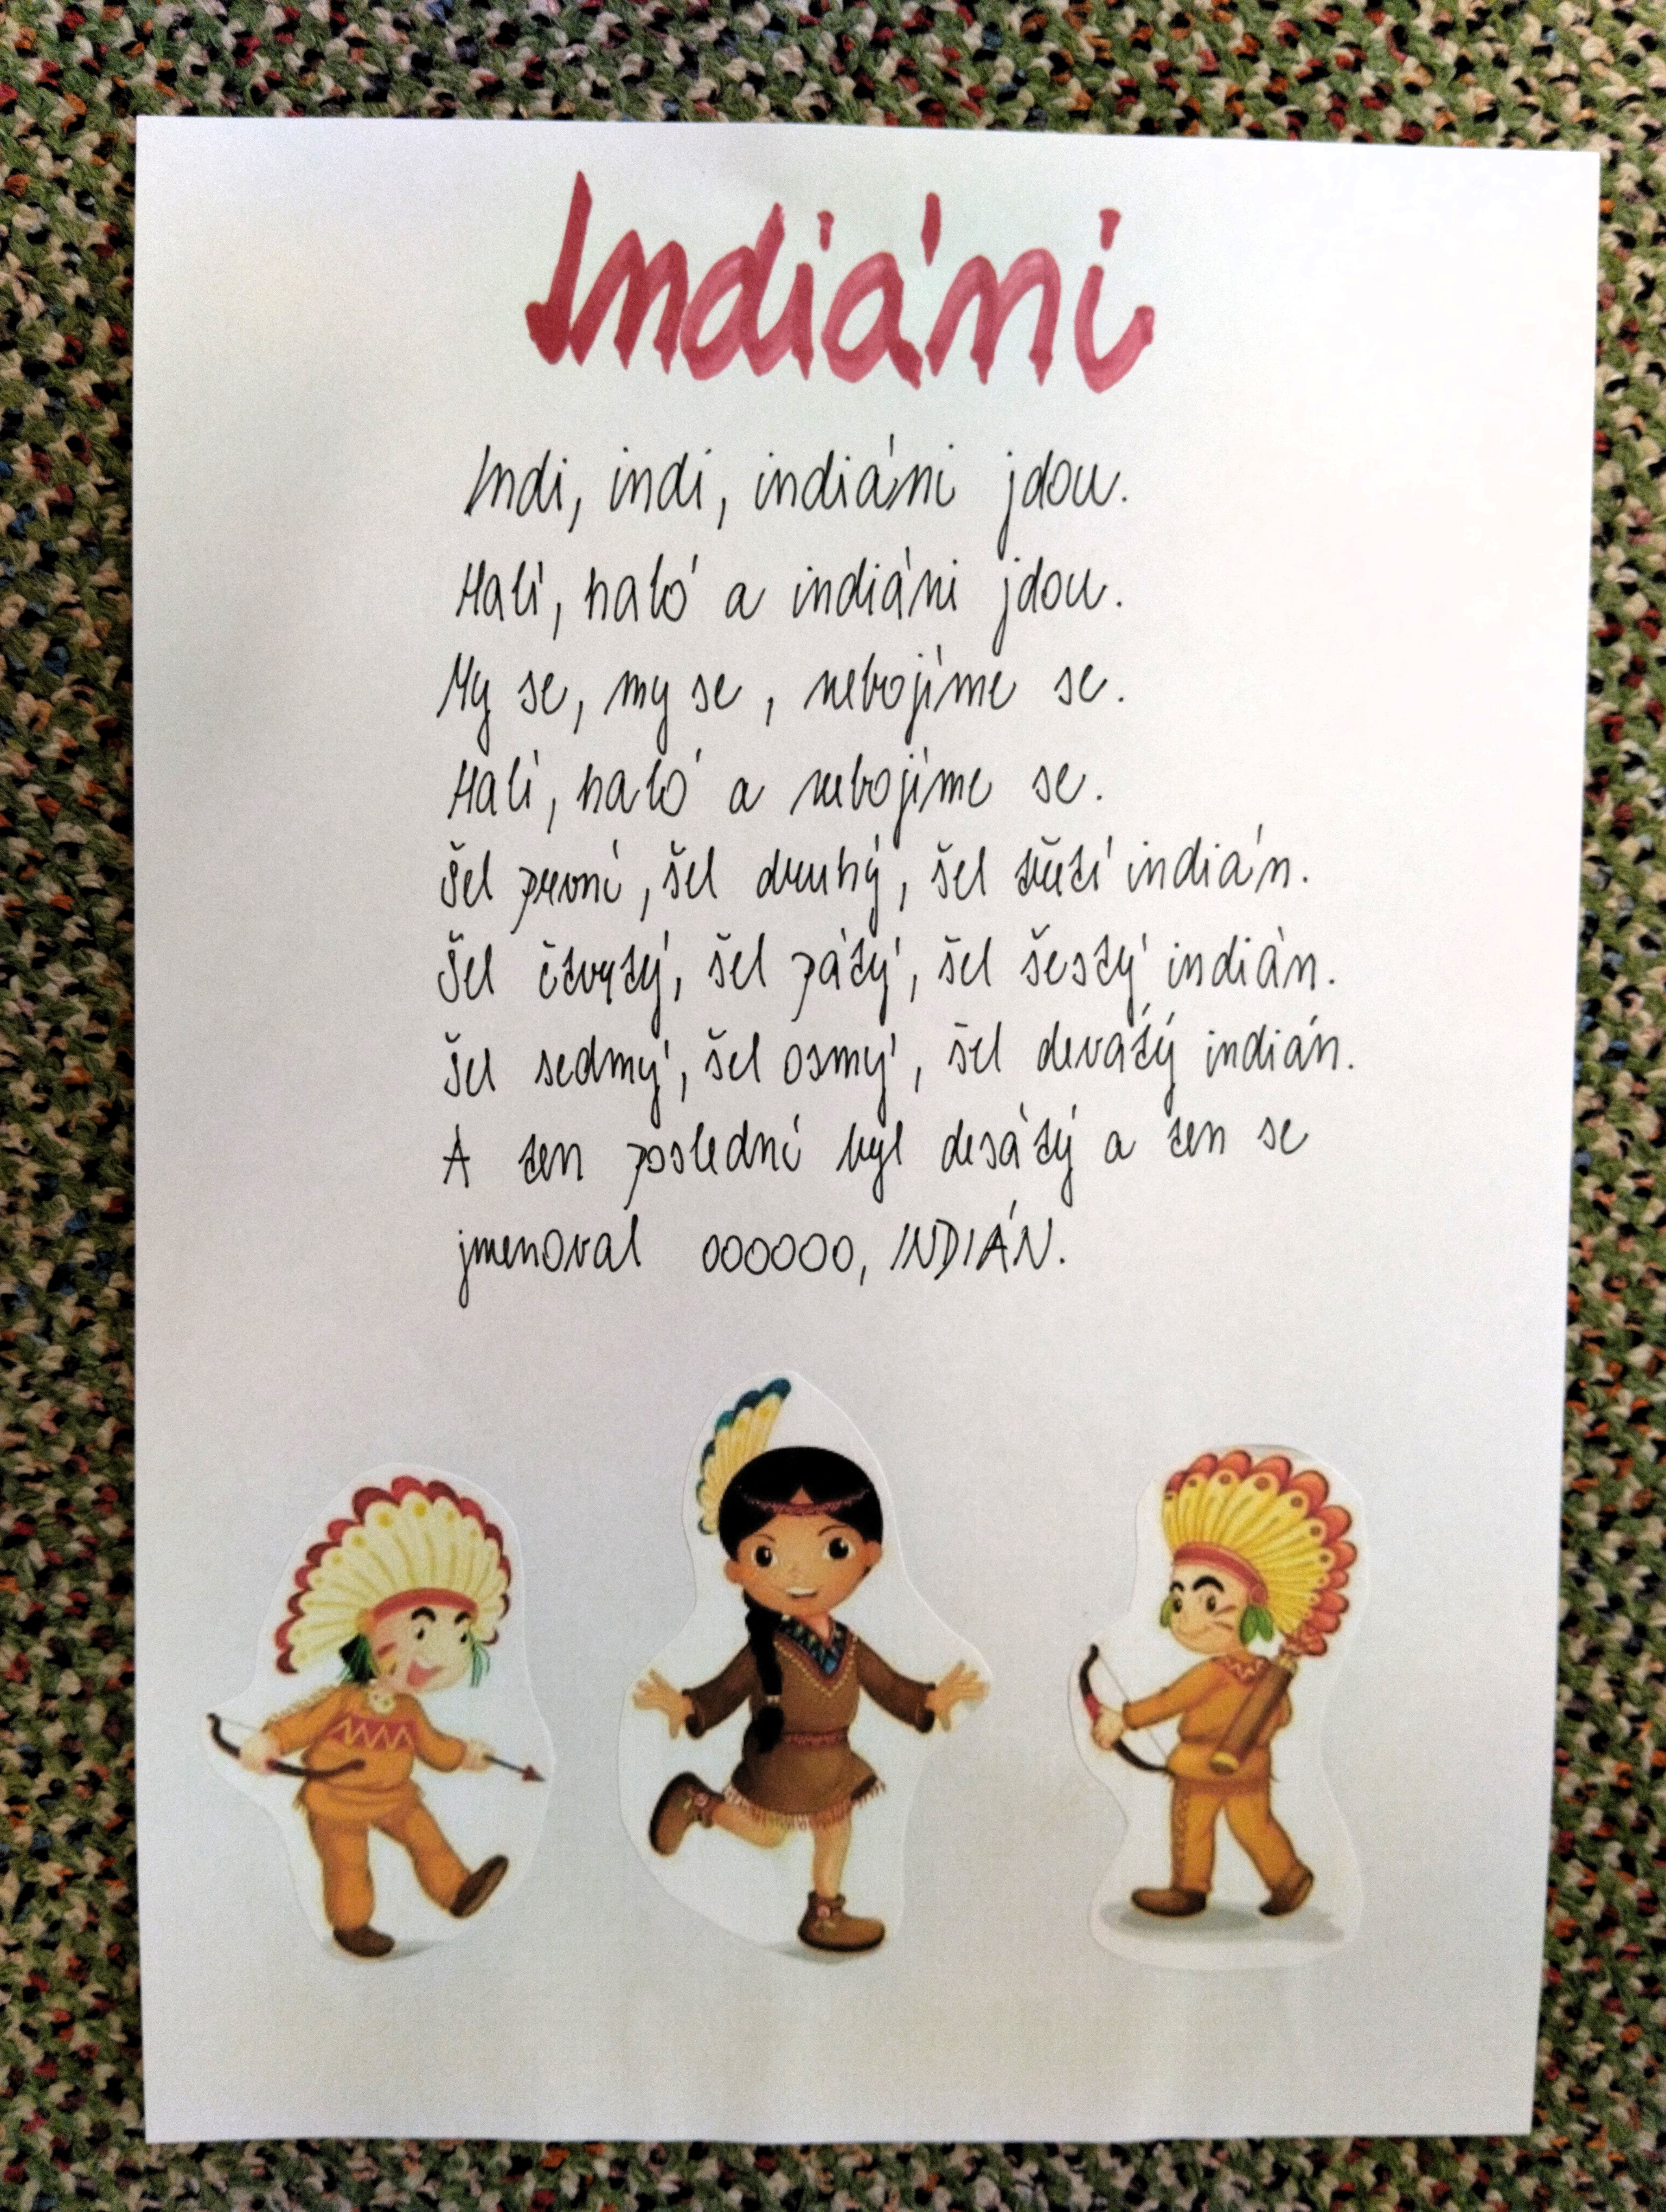 Indiáni
Indi, indi, indiáni jdou.
Halí, haló a indiáni jdou.
My se, my se, nebojíme se.
Halí, haló a nebojíme se.
Šel první, šel druhý, šel třetí indián.
Šel čtvrtý, šel pátý, šel šestý indián.
Šel sedmý, šel osmý, šel devátý indián.
A ten poslední byl desátý a ten se
jmenoval oooooo, INDIÁN.